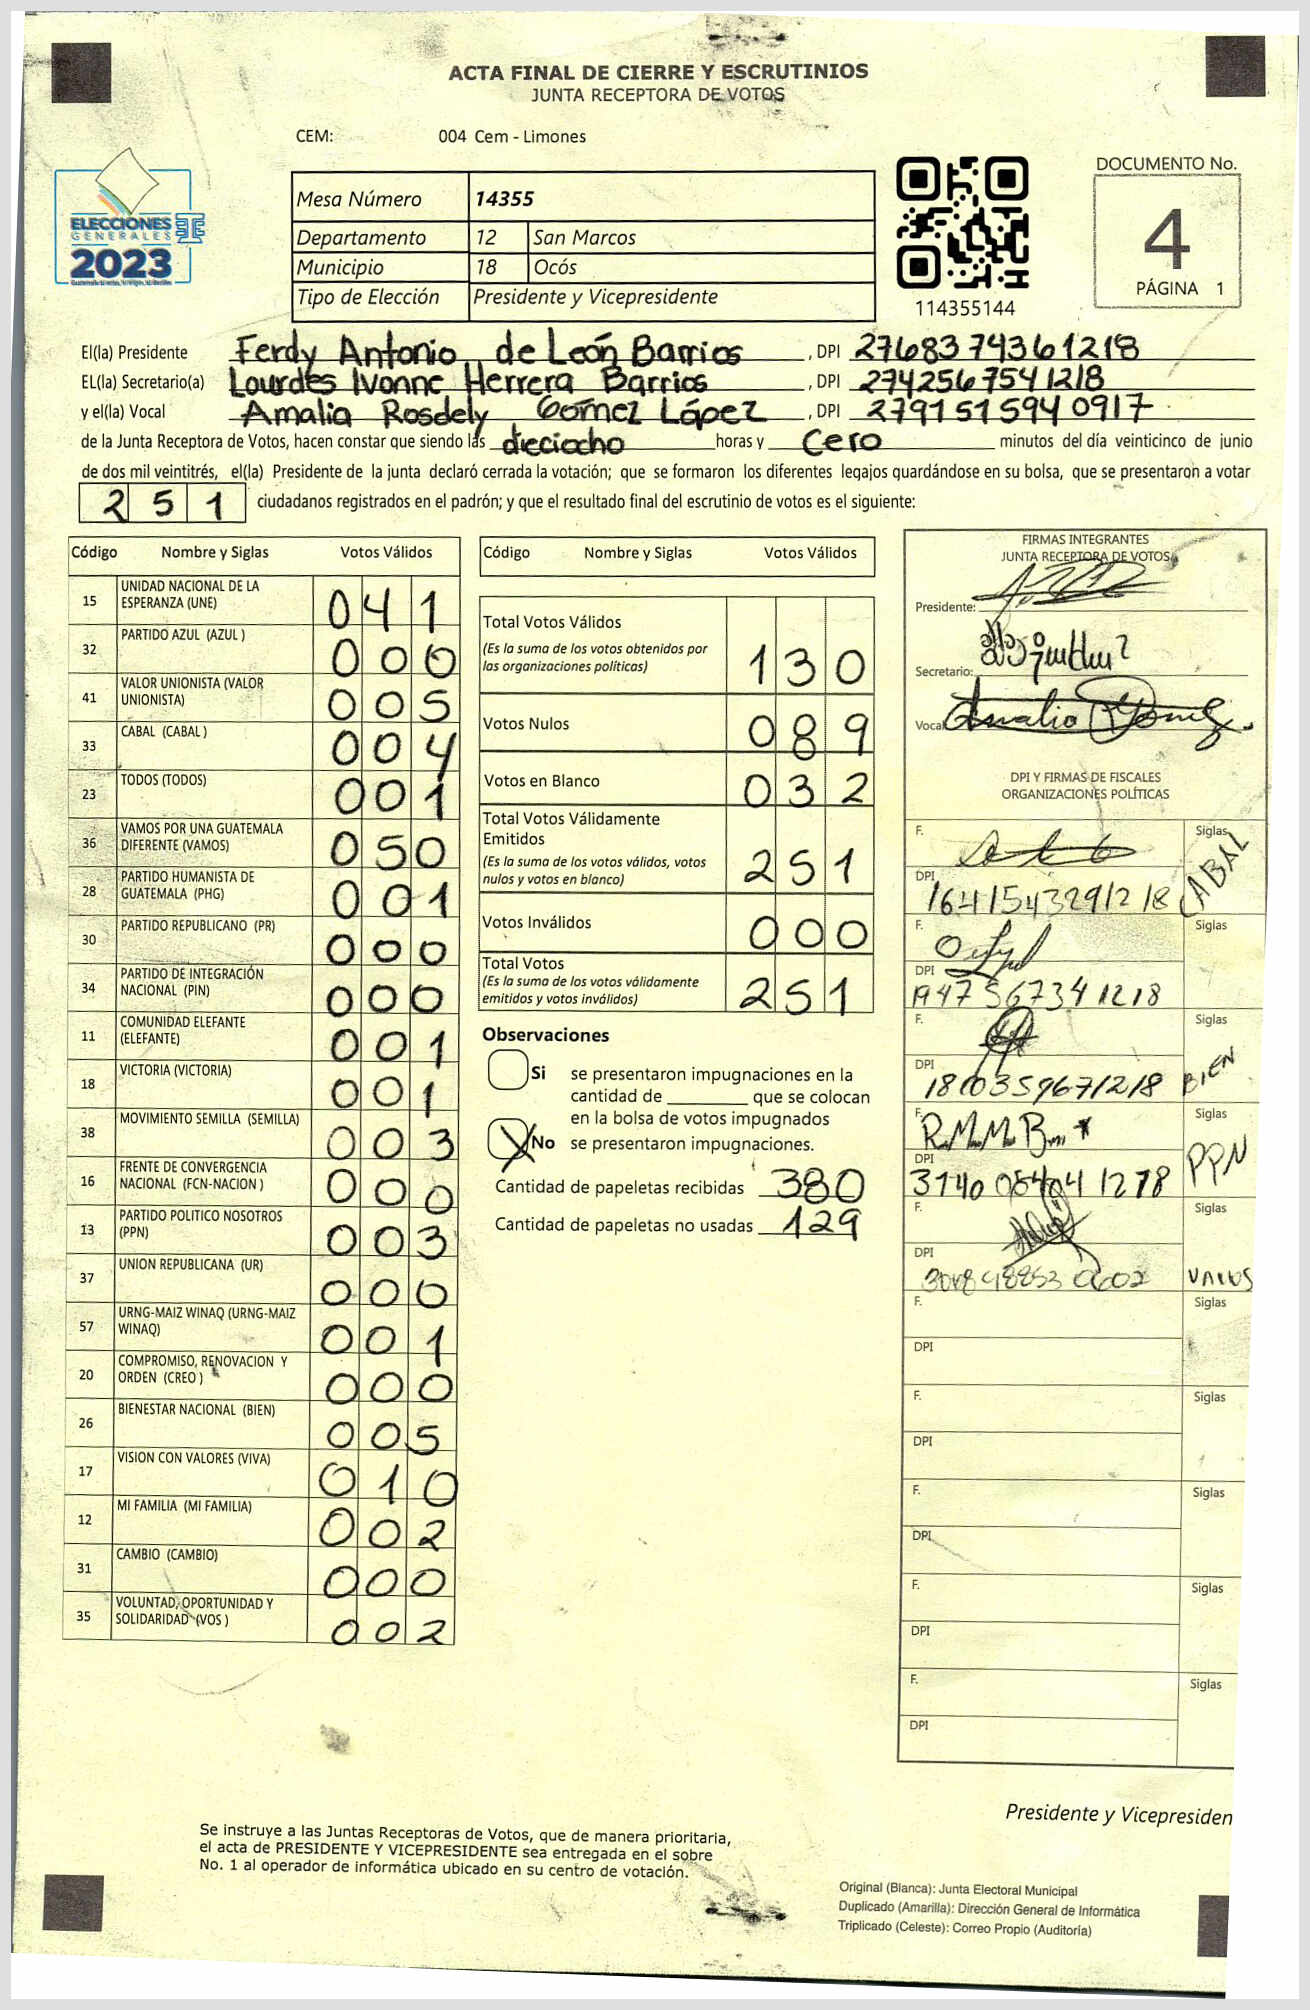 ACTA FINAL DE CIERRE Y ESCRUTINIOS
JUNTA RECEPTORA DE VOTOS
CEM: 004 Cem - Limones
ELECCIONES
GENERALES
2023
Mesa Número 14355
Departamento 12 San Marcos
Municipio 18 Ocós
Tipo de Elección Presidente y Vicepresidente
114355144
DOCUMENTO No.
4
PÁGINA 1
El(la) Presidente Ferdy Antonio de León Barrios , DPI 2768374361218
EL(la) Secretario(a) Lourdes Ivonne Herrera Barrios , DPI 2742567541218
y el(la) Vocal Amalia Rosdely Gómez López , DPI 2791515940917
de la Junta Receptora de Votos, hacen constar que siendo las dieciocho horas y Cero minutos del día veinticinco de junio
de dos mil veintitrés, el(la) Presidente de la junta declaró cerrada la votación; que se formaron los diferentes legajos guardándose en su bolsa, que se presentaron a votar
251 ciudadanos registrados en el padrón; y que el resultado final del escrutinio de votos es el siguiente:
Código Nombre y Siglas Votos Válidos
15 UNIDAD NACIONAL DE LA ESPERANZA (UNE) 041
32 PARTIDO AZUL (AZUL ) 000
41 VALOR UNIONISTA (VALOR UNIONISTA) 005
33 CABAL (CABAL ) 004
23 TODOS (TODOS) 001
36 VAMOS POR UNA GUATEMALA DIFERENTE (VAMOS) 050
28 PARTIDO HUMANISTA DE GUATEMALA (PHG) 001
30 PARTIDO REPUBLICANO (PR) 000
34 PARTIDO DE INTEGRACIÓN NACIONAL (PIN) 000
11 COMUNIDAD ELEFANTE (ELEFANTE) 001
18 VICTORIA (VICTORIA) 001
38 MOVIMIENTO SEMILLA (SEMILLA) 003
16 FRENTE DE CONVERGENCIA NACIONAL (FCN-NACION ) 000
13 PARTIDO POLITICO NOSOTROS (PPN) 003
37 UNION REPUBLICANA (UR) 000
57 URNG-MAIZ WINAQ (URNG-MAIZ WINAQ) 001
20 COMPROMISO, RENOVACION Y ORDEN (CREO ) 000
26 BIENESTAR NACIONAL (BIEN) 005
17 VISION CON VALORES (VIVA) 010
12 MI FAMILIA (MI FAMILIA) 002
31 CAMBIO (CAMBIO) 000
35 VOLUNTAD, OPORTUNIDAD Y SOLIDARIDAD (VOS ) 002
Código Nombre y Siglas Votos Válidos
Total Votos Válidos 130
(Es la suma de los votos obtenidos por
las organizaciones políticas)
Votos Nulos 089
Votos en Blanco 032
Total Votos Válidamente
Emitidos 251
(Es la suma de los votos válidos, votos
nulos y votos en blanco)
Votos Inválidos 000
Total Votos 251
(Es la suma de los votos válidamente
emitidos y votos inválidos)
Observaciones
Si se presentaron impugnaciones en la
cantidad de ________ que se colocan
en la bolsa de votos impugnados
X No se presentaron impugnaciones.
Cantidad de papeletas recibidas 380
Cantidad de papeletas no usadas 129
FIRMAS INTEGRANTES
JUNTA RECEPTORA DE VOTOS
Presidente:
Secretario:
Vocal Amalia Gomez
DPI Y FIRMAS DE FISCALES
ORGANIZACIONES POLÍTICAS
F. Siglas CABAL
DPI 1641543291218
F. Siglas
DPI 1947567341218
F. Siglas BIEN
DPI
F. R.M.M.B. Siglas PPN
DPI
F. Siglas VAMOS
DPI
F. Siglas
DPI
F. Siglas
DPI
F. Siglas
DPI
F. Siglas
DPI
F. Siglas
DPI
Presidente y Vicepresiden
Se instruye a las Juntas Receptoras de Votos, que de manera prioritaria,
el acta de PRESIDENTE Y VICEPRESIDENTE sea entregada en el sobre
No. 1 al operador de informática ubicado en su centro de votación.
Original (Blanca): Junta Electoral Municipal
Duplicado (Amarilla): Dirección General de Informática
Triplicado (Celeste): Correo Propio (Auditoría)